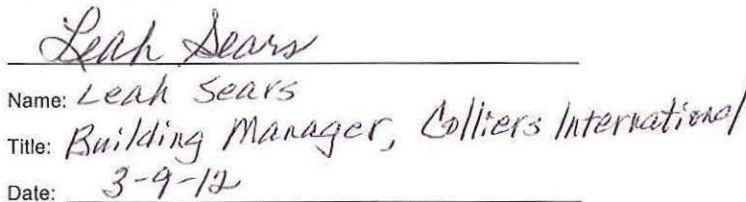 Leah Sears
Name: Leah Sears
Title: Building Manager, Colliers International
Date: 3-9-12